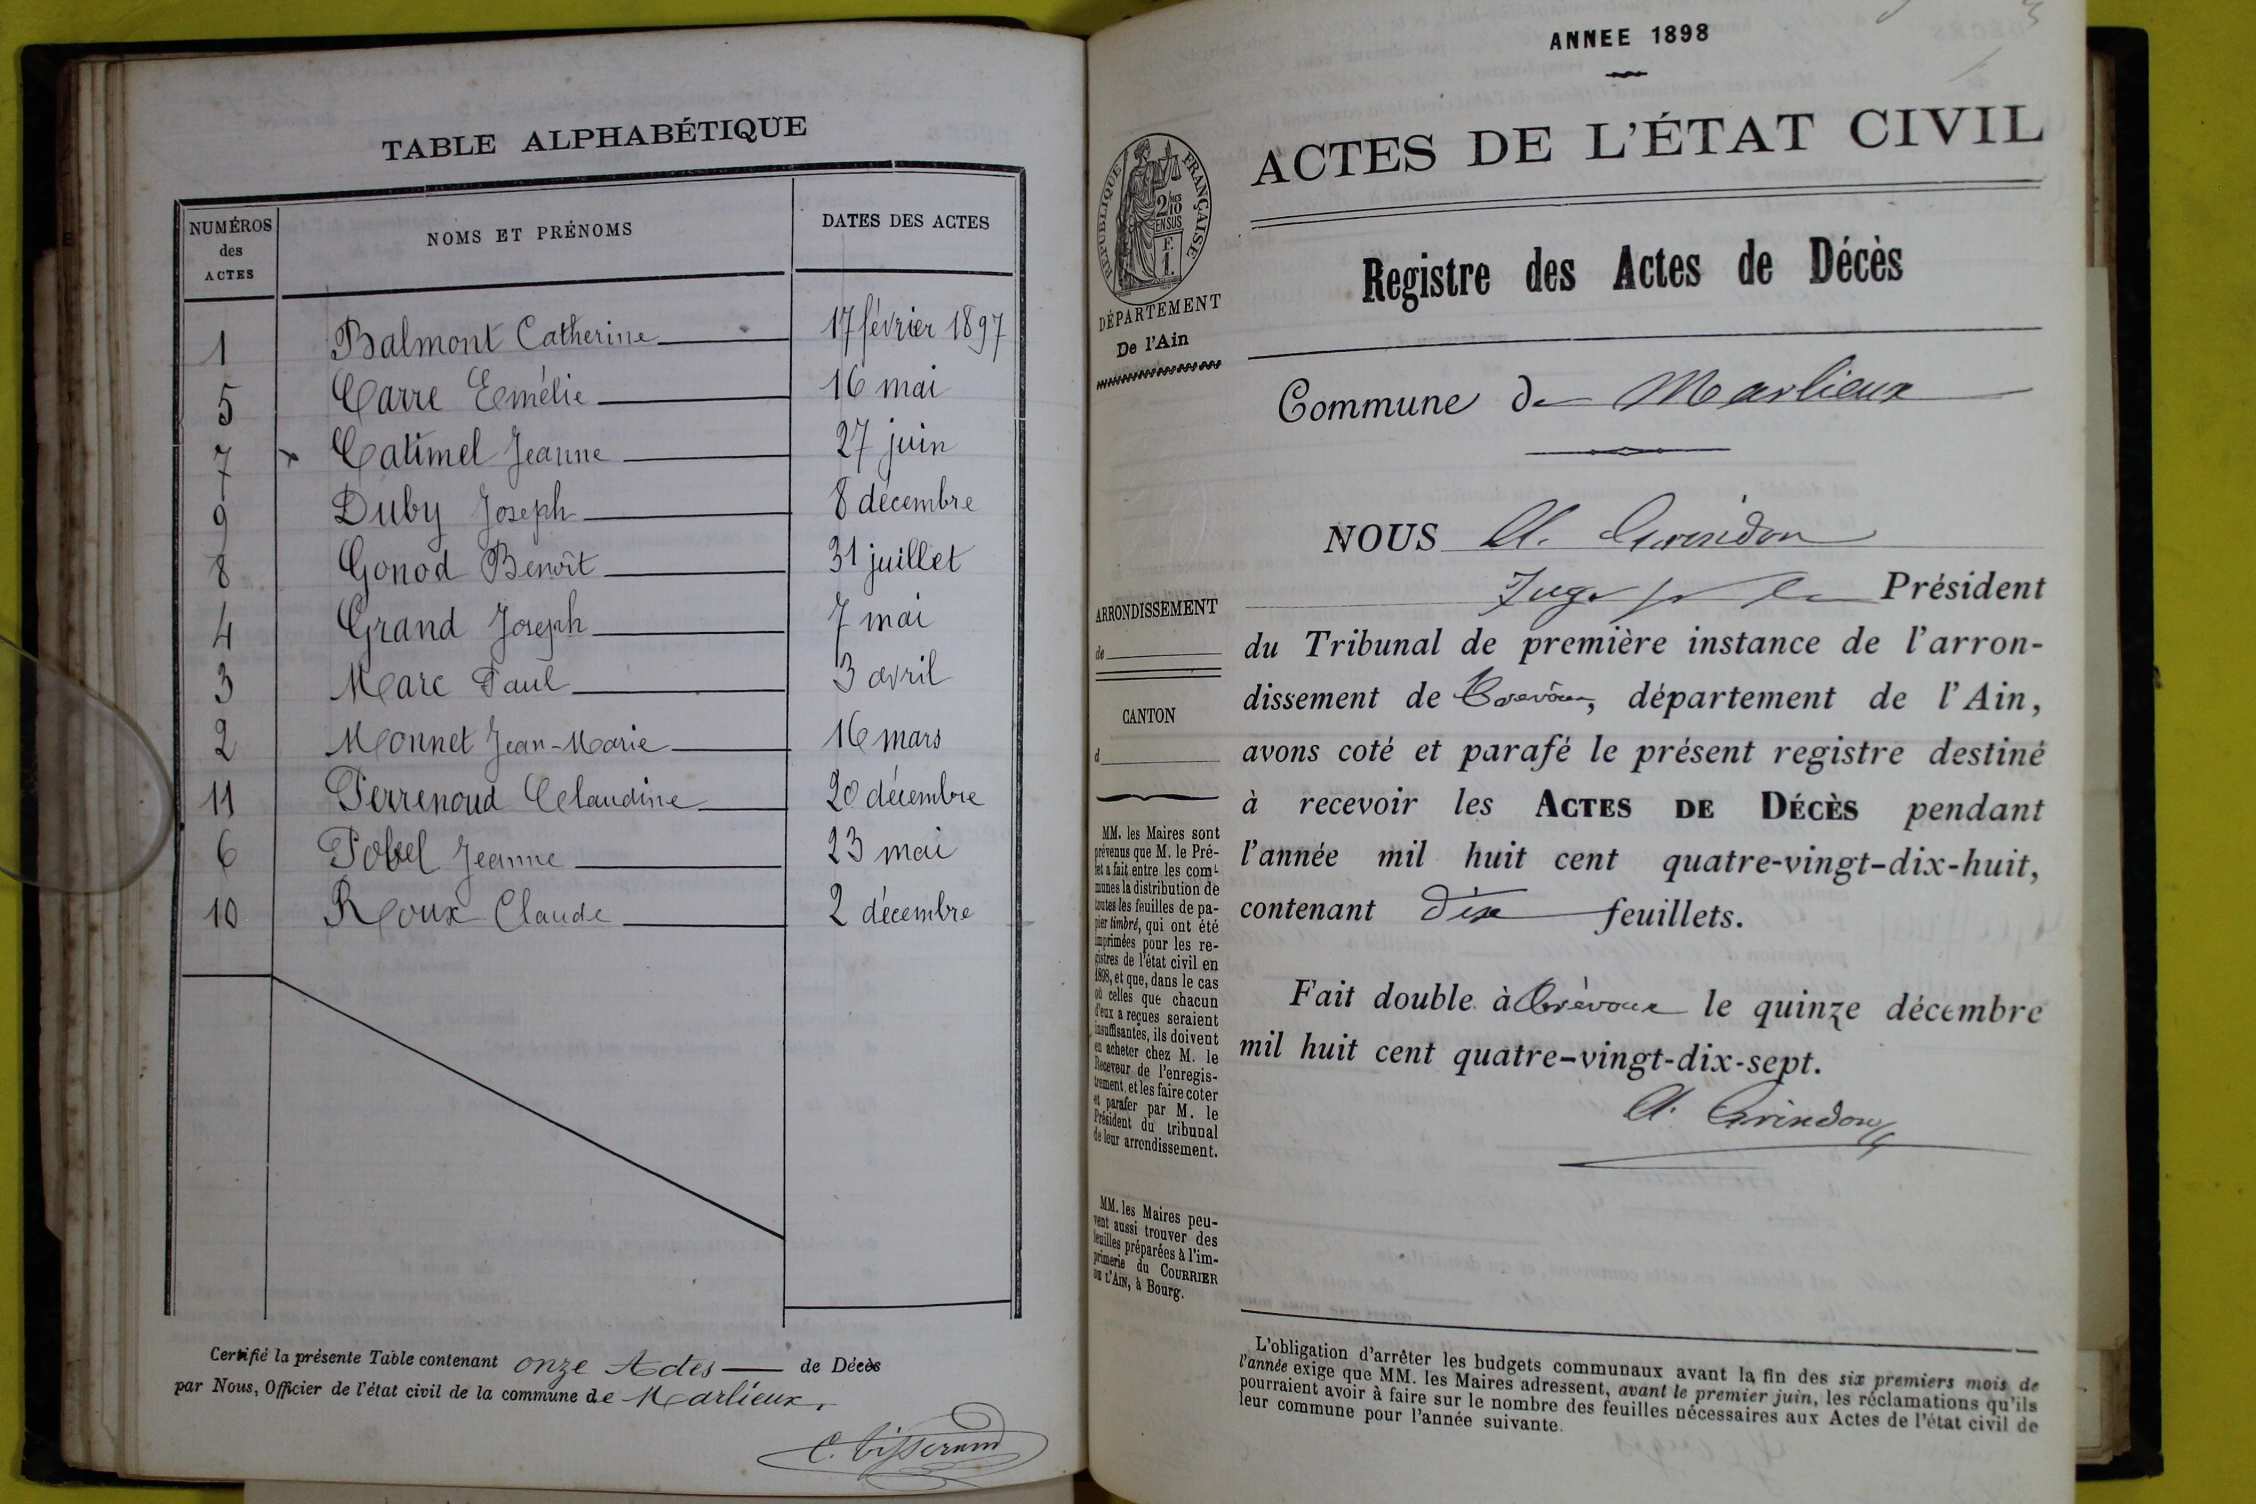 TABLE ALPHABÉTIQUE
NUMÉROS des ACTES NOMS ET PRÉNOMS DATES DES ACTES
1 Balmont Catherine 17 février 1897
5 Carre Emélie 16 mai
7 Catimel Jeanne 27 juin
9 Duby Joseph 8 décembre
8 Gonod Benoît 31 juillet
4 Grand Joseph 7 mai
3 Marc Paul 3 avril
2 Monnet Jean-Marie 16 mars
11 Perrenoud Claudine 20 décembre
6 Pobel Jeanne 23 mai
10 Roux Claude 2 décembre
Certifié la présente Table contenant onze Actes de Décès
par Nous, Officier de l'état civil de la commune de Marlieux.
C. Tisserand
ANNEE 1898
ACTES DE L'ÉTAT CIVIL
RÉPUBLIQUE FRANÇAISE
2/10
EN SUS
F.
1.
DÉPARTEMENT
De l'Ain
Registre des Actes de Décès
Commune de Marlieux
NOUS A. Grindon
Juge Président
du Tribunal de première instance de l'arron-
dissement de Trévoux, département de l'Ain,
avons coté et parafé le présent registre destiné
à recevoir les ACTES DE DÉCÈS pendant
l'année mil huit cent quatre-vingt-dix-huit,
contenant dix feuillets.
Fait double à Trévoux le quinze décembre
mil huit cent quatre-vingt-dix-sept.
A. Grindon
ARRONDISSEMENT
de
CANTON
d
MM. les Maires sont
prévenus que M. le Pré-
fet a fait entre les com-
munes la distribution de
toutes les feuilles de pa-
pier timbré, qui ont été
imprimées pour les re-
gistres de l'état civil en
1898, et que, dans le cas
où celles que chacun
d'eux a reçues seraient
insuffisantes, ils doivent
en acheter chez M. le
Receveur de l'enregis-
trement, et les faire coter
et parafer par M. le
Président du tribunal
de leur arrondissement.
MM. les Maires peu-
vent aussi trouver des
feuilles préparées à l'im-
primerie du COURRIER
DE L'AIN, à Bourg.
L'obligation d'arrêter les budgets communaux avant la fin des six premiers mois de
l'année exige que MM. les Maires adressent, avant le premier juin, les réclamations qu'ils
pourraient avoir à faire sur le nombre des feuilles nécessaires aux Actes de l'état civil de
leur commune pour l'année suivante.